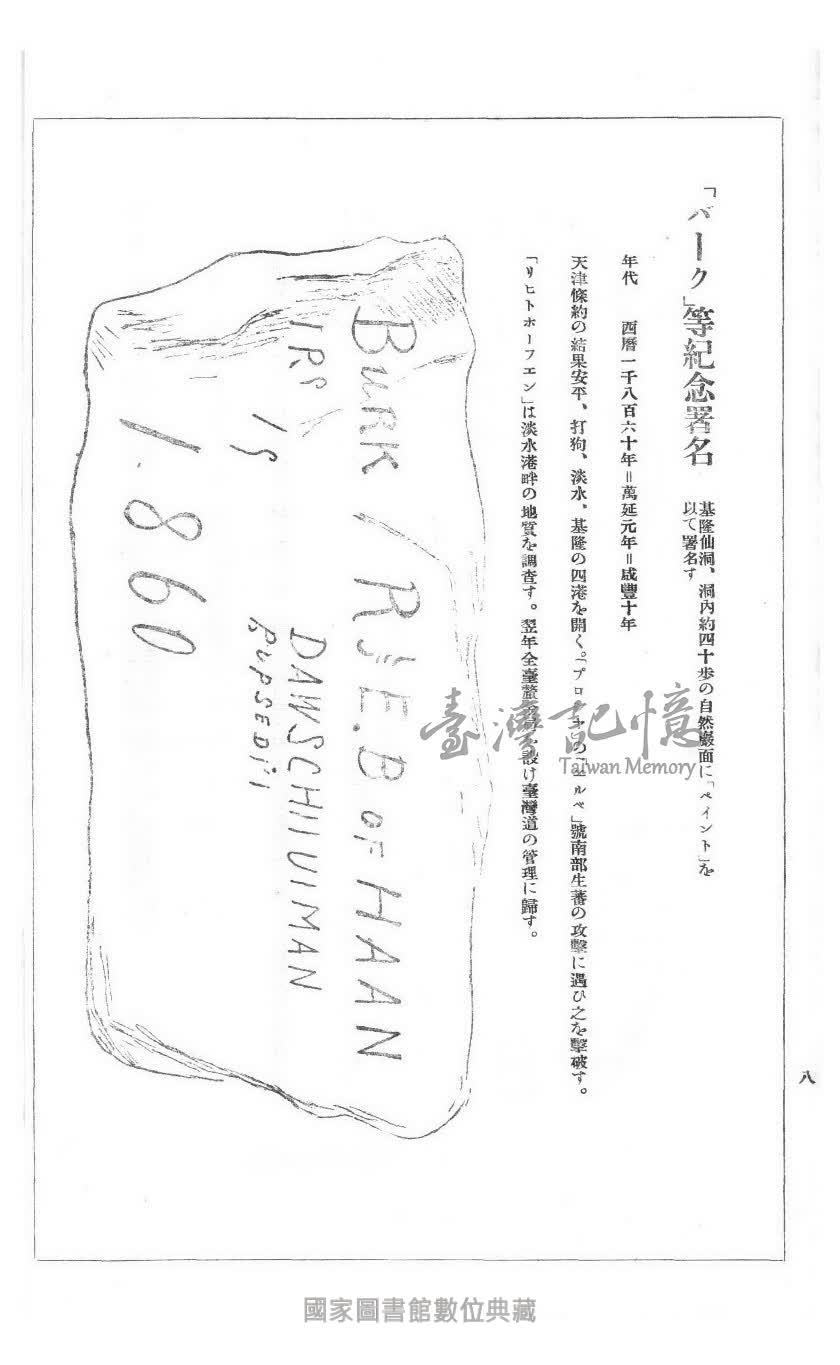 「バーク」等紀念署名
基隆仙洞、洞內約四十歩の自然巖面に「ペイント」を
以て署名す
年代　西曆一千八百六十年＝萬延元年＝咸豐十年
天津條約の結果安平、打狗、淡水、基隆の四港を開く。「プロシヤ」の「エルベ」號南部生蕃の攻擊に遇ひ之を擊破す。
「リヒトホーフエン」は淡水港畔の地質を調査す。翌年全臺釐金局を設け臺灣道の管理に歸す。
BURK / RJ'E.B OF HAAN
IRS
DAWSCHIIUIMAN
1S
RUPSEDI'I
1.860
八
臺灣記憶
Taiwan Memory
國家圖書館數位典藏